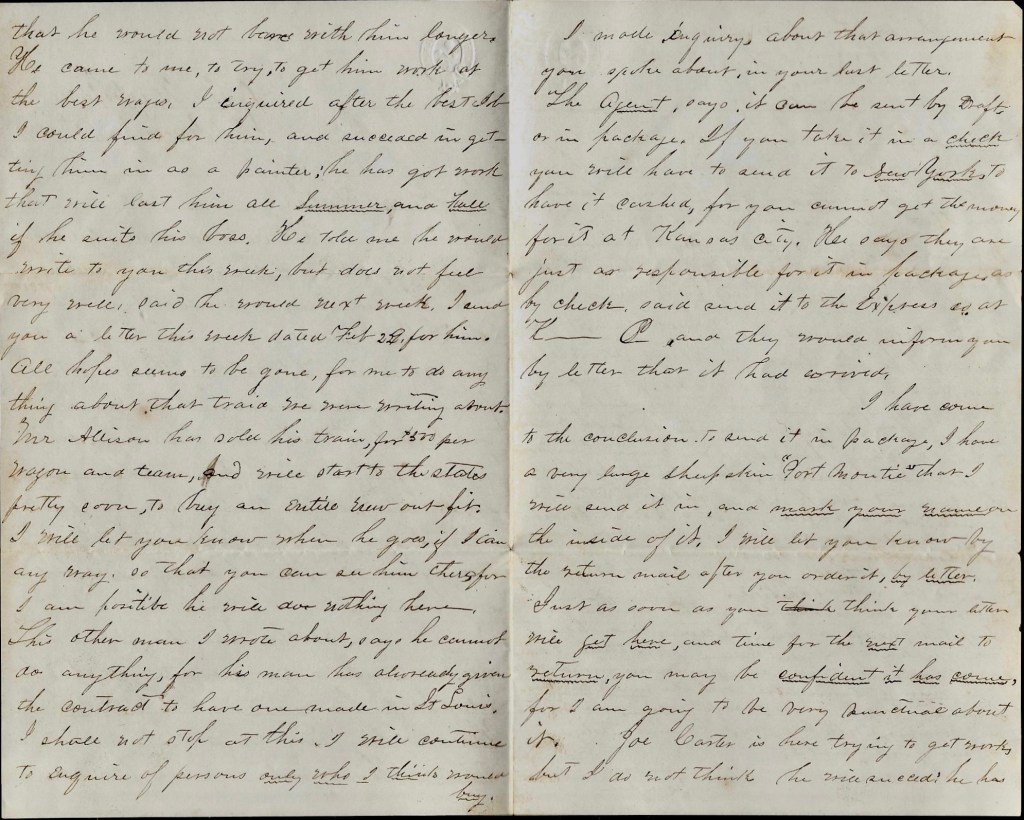 that he would not bare with him longer.
He came to me, to try, to get him work at
the best wages. I inquired after the best Job
I could find for him, and succeded in get-
ting him in as a painter; he has got work
that will last him all Summer, and Fall
if he suits his boss. He told me he would
write to you this week, but does not feel
very well, said he would next week. I send
you a letter this week dated Feb 29, for him.
All hopes seems to be gone, for me to do any
thing about that traid we were writing about.
Mr Allison has sold his train, for $500 per
wagon and team, and will start to the states
pretty soon, to buy an entire new out fit.
I will let you know when he goes, if I can
any way. so that you can see him there, for
I am positibe he will do nothing here.
This other man I wrote about, says he cannot
do anything, for his man has alwready given
the contract to have one made in St Louis.
I shall not stop at this. I will continue
to enquire of persons only who I think would
buy.
I made inquiry, about that arrangement
you spoke about, in your last letter.
"The Agent, says, it can be sent by Draft
or in package. If you take it in a check
you will have to send it to New York, to
have it cashed, for you cannot get the money
for it at Kansas City. He says they are
just as responsible for it in package, as
by check, said send it to the Express co. at
K— C, and they would inform you
by letter that it had arrived.
I have come
to the conclusion to send it in package, I have
a very large sheepskin "Port Montie" that I
will send it in, and mark your name on
the inside of it. I will let you know by
the return mail after you order it, by letter.
Just as soon as you think think your letter
will get here, and time for the next mail to
return, you may be confident it has come,
for I am going to be very punctual about
it. Joe Carter is here trying to get work,
but I do not think he will succed; he has